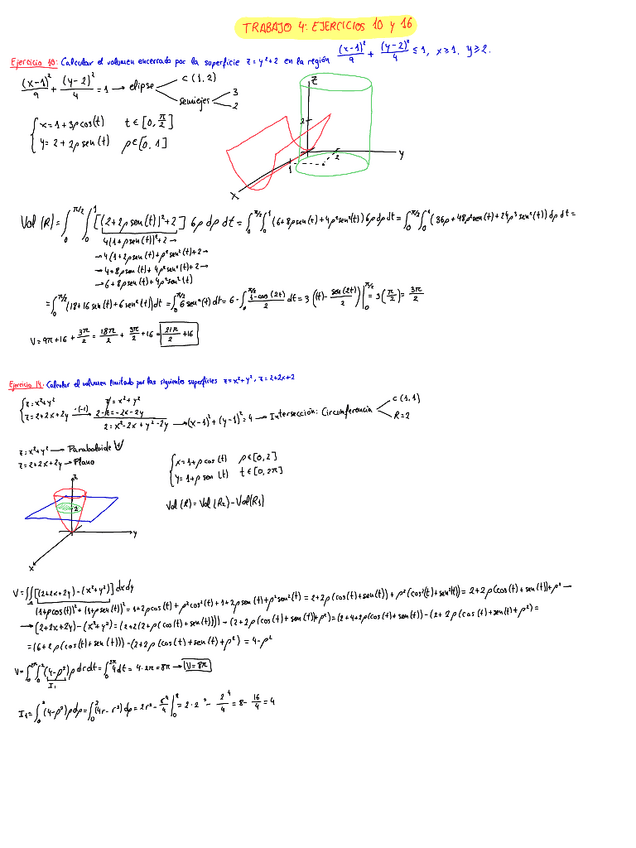 TRABAJO 4: EJERCICIOS 10 y 16
Ejercicio 10: Calcular el volumen encerrado por la superficie z = y²+2 en la región (x-1)²/9 + (y-2)²/4 ≤ 1, x≥1, y≥2.
(x-1)²/9 + (y-2)²/4 = 1 → elipse
C (1, 2)
semiejes
3
2
{ x = 1+3ρcos(t) t ∈ [0, π/2]
y = 2+2ρ sen(t) ρ ∈ [0, 1]
z
2
1
2
y
x
Vol (R) = ∫₀^π/2 ∫₀^1 [(2+2ρ sen(t))²+2] 6ρ dρ dt = ∫₀^π/2 ∫₀^1 (6+8ρ sen(t)+4ρ² sen²(t)) 6ρ dρ dt = ∫₀^π/2 ∫₀^1 (36ρ + 48ρ² sen(t) + 24ρ³ sen²(t)) dρ dt =
4(1+ρ sen(t))²+2 →
→ 4(1+2ρ sen(t)+ρ² sen²(t))+2 →
→ 4+8ρ sen(t)+4ρ² sen²(t)+2 →
→ 6+8ρ sen(t)+4ρ² sen²(t)
= ∫₀^π/2 (18+16 sen(t)+6 sen²(t)) dt = ∫₀^π/2 6 sen²(t) dt = 6 · ∫₀^π/2 1-cos(2t)/2 dt = 3 (t - sen(2t)/2) |₀^π/2 = 3 (π/2) = 3π/2
V = 9π+16 + 3π/2 = 18π/2 + 3π/2 + 16 = 21π/2 + 16
Calcular el volumen limitado por las siguientes superficies z = x²+y²,
{ z = x²+y²
z = 2+2x+2y ·(-1)
z = x²+y²
-z = -2-2x-2y
→ (x-1)²+(y-1)² = 4 → Intersección: Circunferencia
C (1, 1)
R = 2
z = x²+y² → Paraboloide
z = 2+2x+2y → Plano
{ x = 1+ρ cos(t) ρ ∈ [0, 2]
y = 1+ρ sen(t) t ∈ [0, 2π]
Vol (R) = Vol (R₂) - Vol (R₁)
z
2
y
x
V = ∫∫ [(2+2x+2y) - (x²+y²)] dx dy
(1+ρ cos(t))² + (1+ρ sen(t))² = 1+2ρ cos(t) + ρ² cos²(t) + 1 + 2ρ sen(t) + ρ² sen²(t) = 2+2ρ (cos(t)+sen(t)) + ρ² (cos²(t)+sen²(t)) = 2+2ρ (cos(t)+sen(t)) + ρ² →
= (6+2ρ (cos(t)+sen(t))) - (2+2ρ (cos(t)+sen(t)+ρ²) = 4-ρ²
V = ∫₀^2π ∫₀^2 (4-ρ²) ρ dr dt = ∫₀^2π 4 dt = 4 · 2π = 8π → V = 8π
I₁
I₁ = ∫₀^2 (4-ρ²) ρ dρ = ∫₀^2 (4r - r³) dρ = 2r² - r⁴/4 |₀^2 = 2·2² - 2⁴/4 = 8 - 16/4 = 4